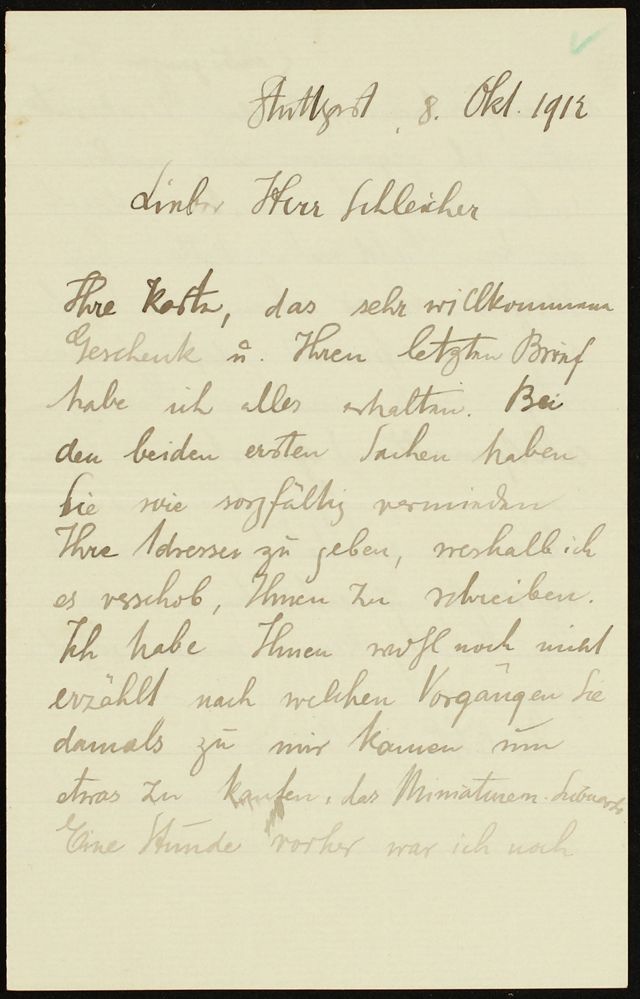 Stuttgart, 8. Okt. 1912
Lieber Herr Schleicher
Ihre Karte, das sehr willkommene
Geschenk u. Ihren letzten Brief
habe ich alles erhalten. Bei
den beiden ersten Sachen haben
Sie wie sorgfältig vermieden
Ihre Adresse zu geben, weshalb ich
es verschob, Ihnen zu schreiben.
Ich habe Ihnen wohl noch nicht
erzählt nach welchen Vorgängen Sie
damals zu mir kamen um
etwas zu kaufen, das Miniaturen
Eine Stunde vorher war ich noch